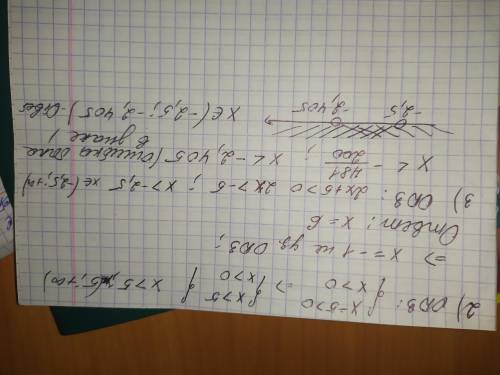 2) ОДЗ: { x-5>0 x>0 => { x>5 x>0 } x>5; (5;+∞)
=> x = -1 не уд. ОДЗ;
Ответ: x = 6
3) ОДЗ: 2x+5>0 2x>-5; x>-2,5 x∈(-2,5;+∞)
x < - 481/200; x < -2,405 (ошибка была в знаке)
-2,5 -2,405
x∈(-2,5; -2,405) -Ответ